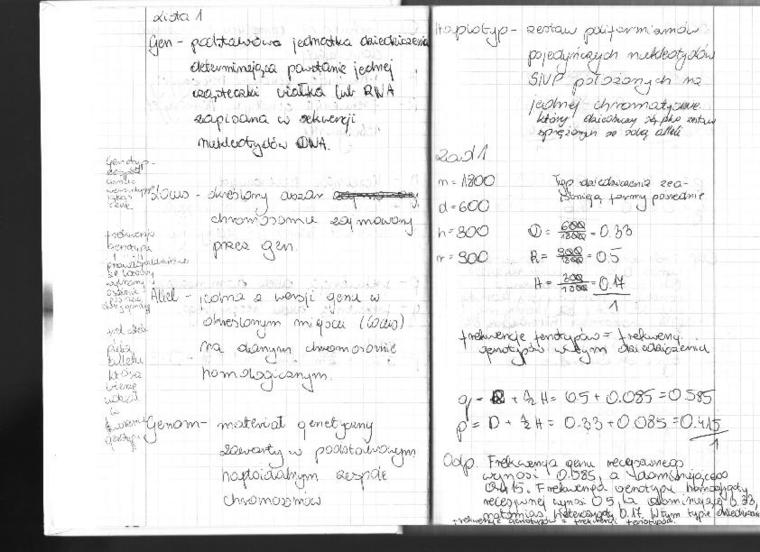 Lista 1
Gen - podstawowa jednostka dziedziczenia
determinująca powstanie jednej
cząsteczki białka lub RNA
zapisana w sekwencji
nukleotydów DNA.
Locus - określony obszar
chromosomie zajmowany
przez gen.
Allel - jedna z wersji genu w
określonym miejscu (locus)
na danym chromosomie
homologicznym.
Genom - materiał genetyczny
zawarty w podstawowym
haploidalnym zespole
chromosomów
Genotyp -
frekwencja
genotypu
pula
która
w
Haplotyp - zestaw polimorfizmów
pojedynczych nukleotydów
SNP położonych na
jednej chromatydzie
który dziedziczy się jako zestaw
sprzężonych ze sobą alleli
Zad 1
n = 1800
d = 600
h = 300
r = 900
Typ dziedziczenia
formy pośrednie
D = 600/1800 = 0.33
R = 900/1800 = 0.5
H = 300/1800 = 0.17
1
frekwencje fenotypów = frekwencji
genotypów w tym dziedziczeniu
q = R + ½ H = 0.5 + 0.085 = 0.585
p = D + ½ H = 0.33 + 0.085 = 0.415
1
Odp. Frekwencja genu recesywnego
wynosi 0.585, a dominującego
0.415. Frekwencja genotypu homozygoty
recesywnej wynosi 0.5, a dominującej 0.33,
natomiast heterozygoty 0.17. W tym typie dziedziczenia
frekwencje genotypów = frekwencji fenotypów.